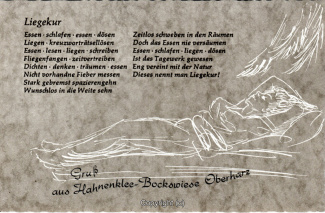 Liegekur
Essen · schlafen · essen · dösen
Liegen · kreuzworträtsellösen
Essen · lesen · liegen · schreiben
Fliegenfangen · zeitvertreiben
Dichten · denken · träumen · essen
Nicht vorhandne Fieber messen
Stark gebremst spazierengehn
Wunschlos in die Weite sehn
Zeitlos schweben in den Räumen
Doch das Essen nie versäumen
Essen · schlafen · liegen · dösen
Ist das Tagewerk gewesen
Eng vereint mit der Natur
Dieses nennt man Liegekur!
Gruß
aus Hahnenklee-Bockswiese Oberharz